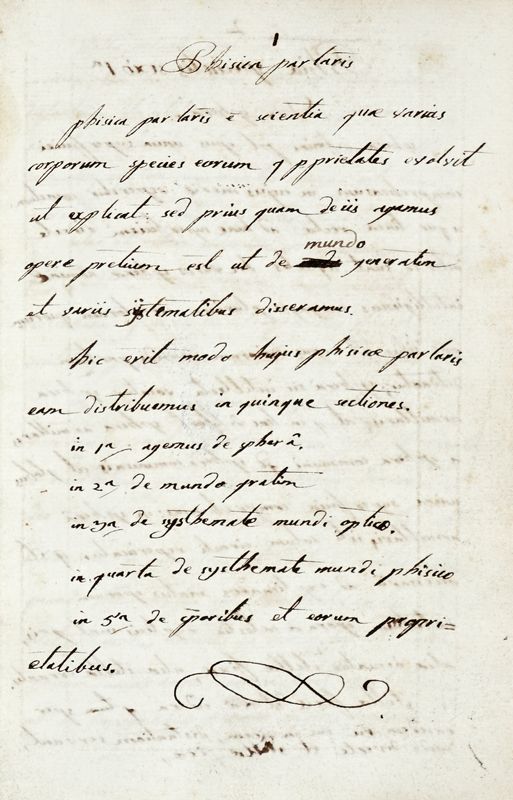 1
Phisica parlaris
phisica parlaris ē scientia quæ varias
corporum species eorum q pprietates evolvit
ut explicat: sed prius quam de iis agamus
mundo
opere pretium est ut de generatim
et variis systematibus disseramus.
hic erit modo hujus phisicæ parlaris
eam distribuemus in quinque sectiones.
in 1a agemus de spherâ.
in 2a de mundo gratim
in 3a de systhemate mundi optico.
in quarta de systhemate mundi phisico
in 5a de c̄poribus et eorum propri=
etatibus.